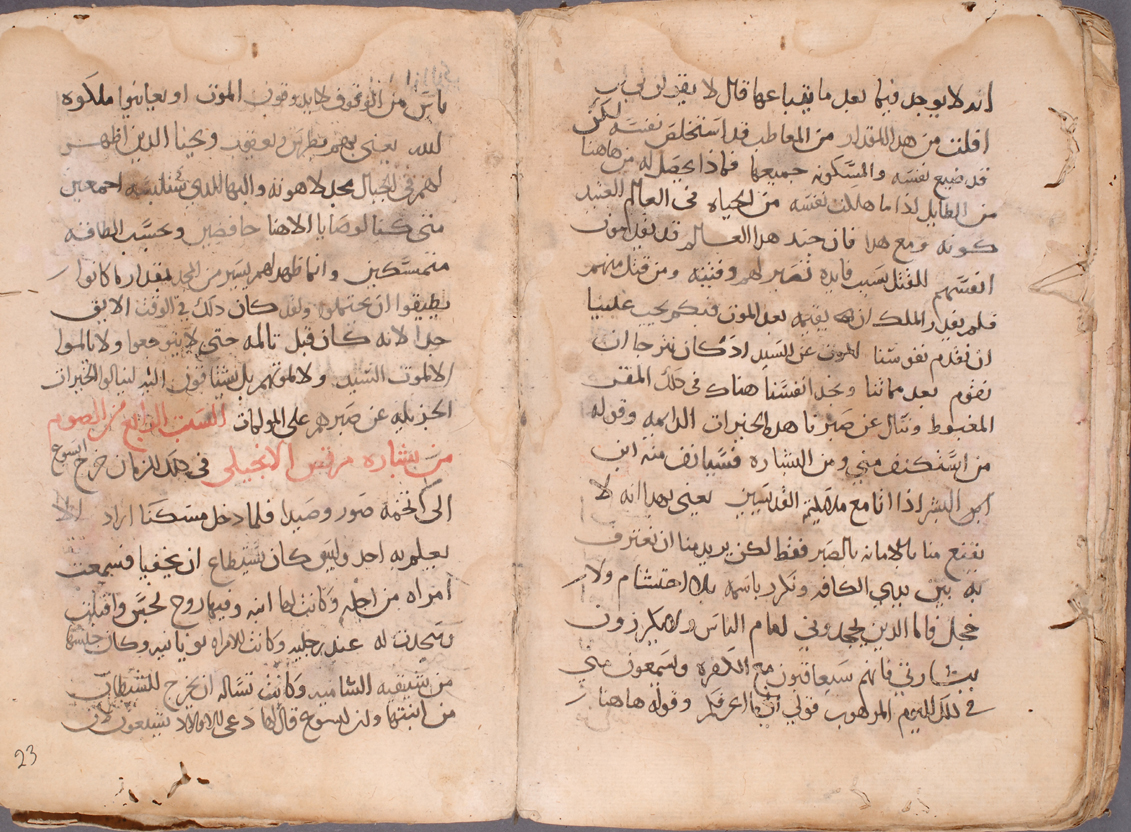 انه لا يوجد فيما بعد ما يفيا عنها قال لا يقولن
افلت من هدا المقدار من المعاطب قد استخلص نفسه لكن
قد ضيع نفسه والمسكونه جميعها فماذا يحصل له من هاهنا
من الطايل اذا ما هلك نفسه من الحياه في العالم العتيد
كونه ومع هدا فان جند هدا العالم قد يقدمون
انفسهم للقتل بسبب فايده تصير لهم وقنيه ومن قتل منهم
فلم يقدر الملك ان يقيمه بعد الموت فبكم يجب علينا
ان نقدم نفوسنا للموت عن السيد اد كان نترجا ان
نقوم بعد مماتنا ونجد انفسنا هناك في دلك المقر
المغبوط وننال عن صبرنا هده الخيرات الدايمه وقوله
من استنكف مني ومن البشاره فسيانف منه ابن
البشر اذا اتا مع ملايكته القديسين يعني بهدا انه لا
يقنع منا بالامانه بالصبر فقط لكن يريد منا ان نعترف
به بين يدي الكافر ونكرز باسمه بلا احتشام ولا
خجل فاما الذين يجحدوني قدام الناس ولا يكرزون
ببشارتي فانهم سيعاقبون مع الكفره ويسمعون مني
في دلك اليوم المرهوب قولي اني ما اعرفكم وقوله هاهنا
ناس من الوقوف لا يدوقون الموت او يعاينوا ملكوة
الله يعني بهم بطرس ويعقوب ويحنا الدين اظهر
لهم في الجبل مجد لاهوته والبها الدي سنلبسه اجمعين
متى كنا لوصايا الاهنا حافظين وبحسب الطاقه
متمسكين وانما ظهر لهم يسير من المجد بمقدار ما كانوا
يطيقوا ان يحتملوه ولقد كان دلك في الوقت الايق
جدا لانه كان قبل تالمه حتى لا يتوجعوا ولا تالموا
لالموت السيد ولا لموتهم بل يشتاقون اليه لينالوا الخيرات
الجزيله عن صبرهم على المولمات السبت الرابع من الصوم
من بشاره مرقس الانجيلي في دلك الزمان خرج ايسوع
الى تخمة صور وصيدا فلما دخل مسكنا اراد الا
يعلم به احد وليس كان يستطاع ان يخفيا فسمعت
امراه من اجله وكانت لها ابنه وفيها روح نجس واقبلت
تسجدت له عند رجليه وكانت الامراه يونانيه وكان جنسها
من فينيقيه الشاميه وكانت تساله ان يخرج الشيطان
من ابنتها وان ليسوع قال لها دعي الاولاد يشبعون
23